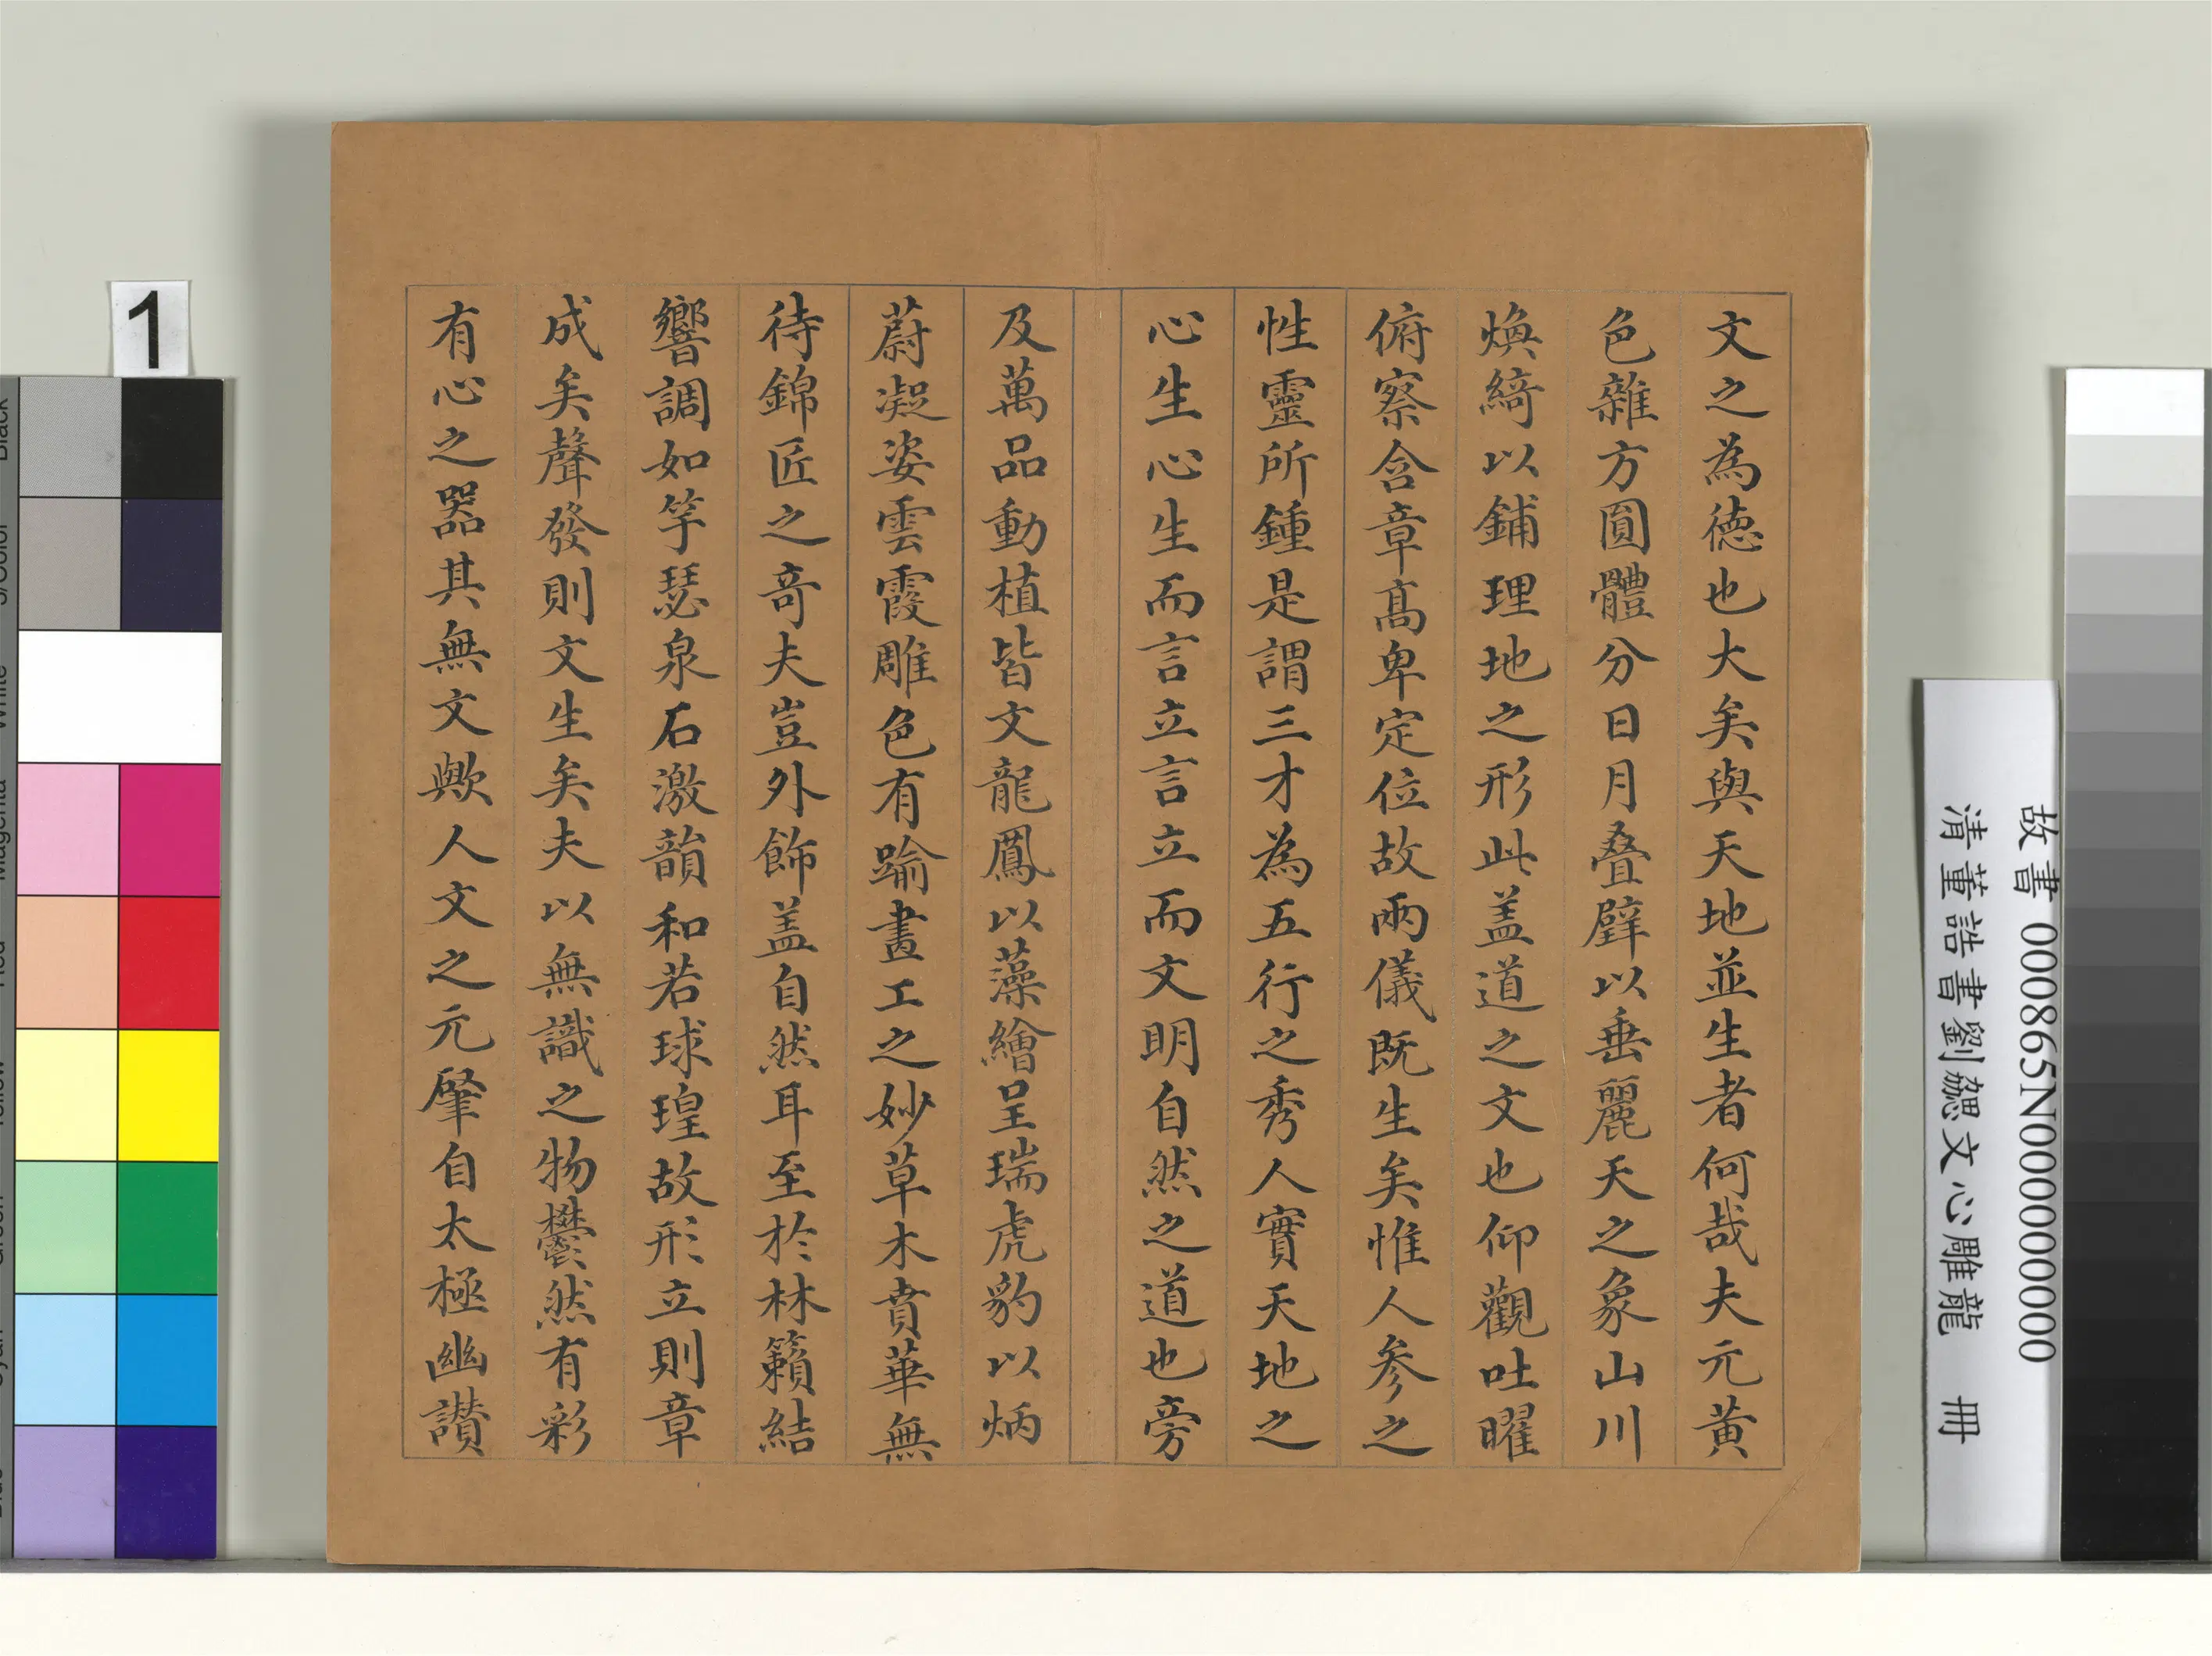 文之為德也大矣與天地並生者何哉夫元黃
色雜方圓體分日月叠璧以垂麗天之象山川
煥綺以鋪理地之形此盖道之文也仰觀吐曜
俯察含章高卑定位故兩儀既生矣惟人參之
性靈所鍾是謂三才為五行之秀人實天地之
心生心生而言立言立而文明自然之道也旁
及萬品動植皆文龍鳳以藻繪呈瑞虎豹以炳
蔚凝姿雲霞雕色有踰畫工之妙草木賁華無
待錦匠之奇夫豈外飾盖自然耳至於林籟結
響調如竽瑟泉石激韻和若球瑝故形立則章
成矣聲發則文生矣夫以無識之物鬱然有彩
有心之器其無文歟人文之元肇自太極幽讚
故書 000865N000000000
清董誥書劉勰文心雕龍 冊
1
Black
3/Color
White
Magenta
Red
Yellow
Green
Cyan
Blue